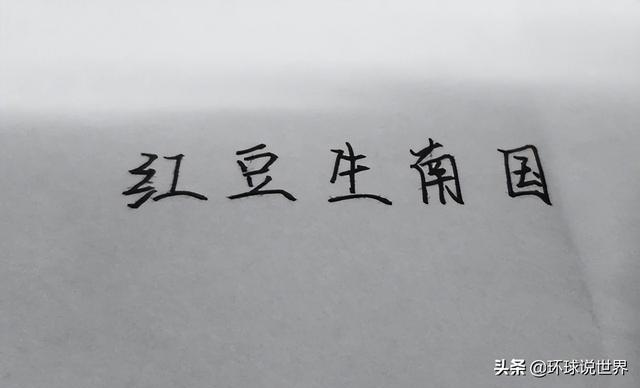 红豆生南国
头条 @环球说世界